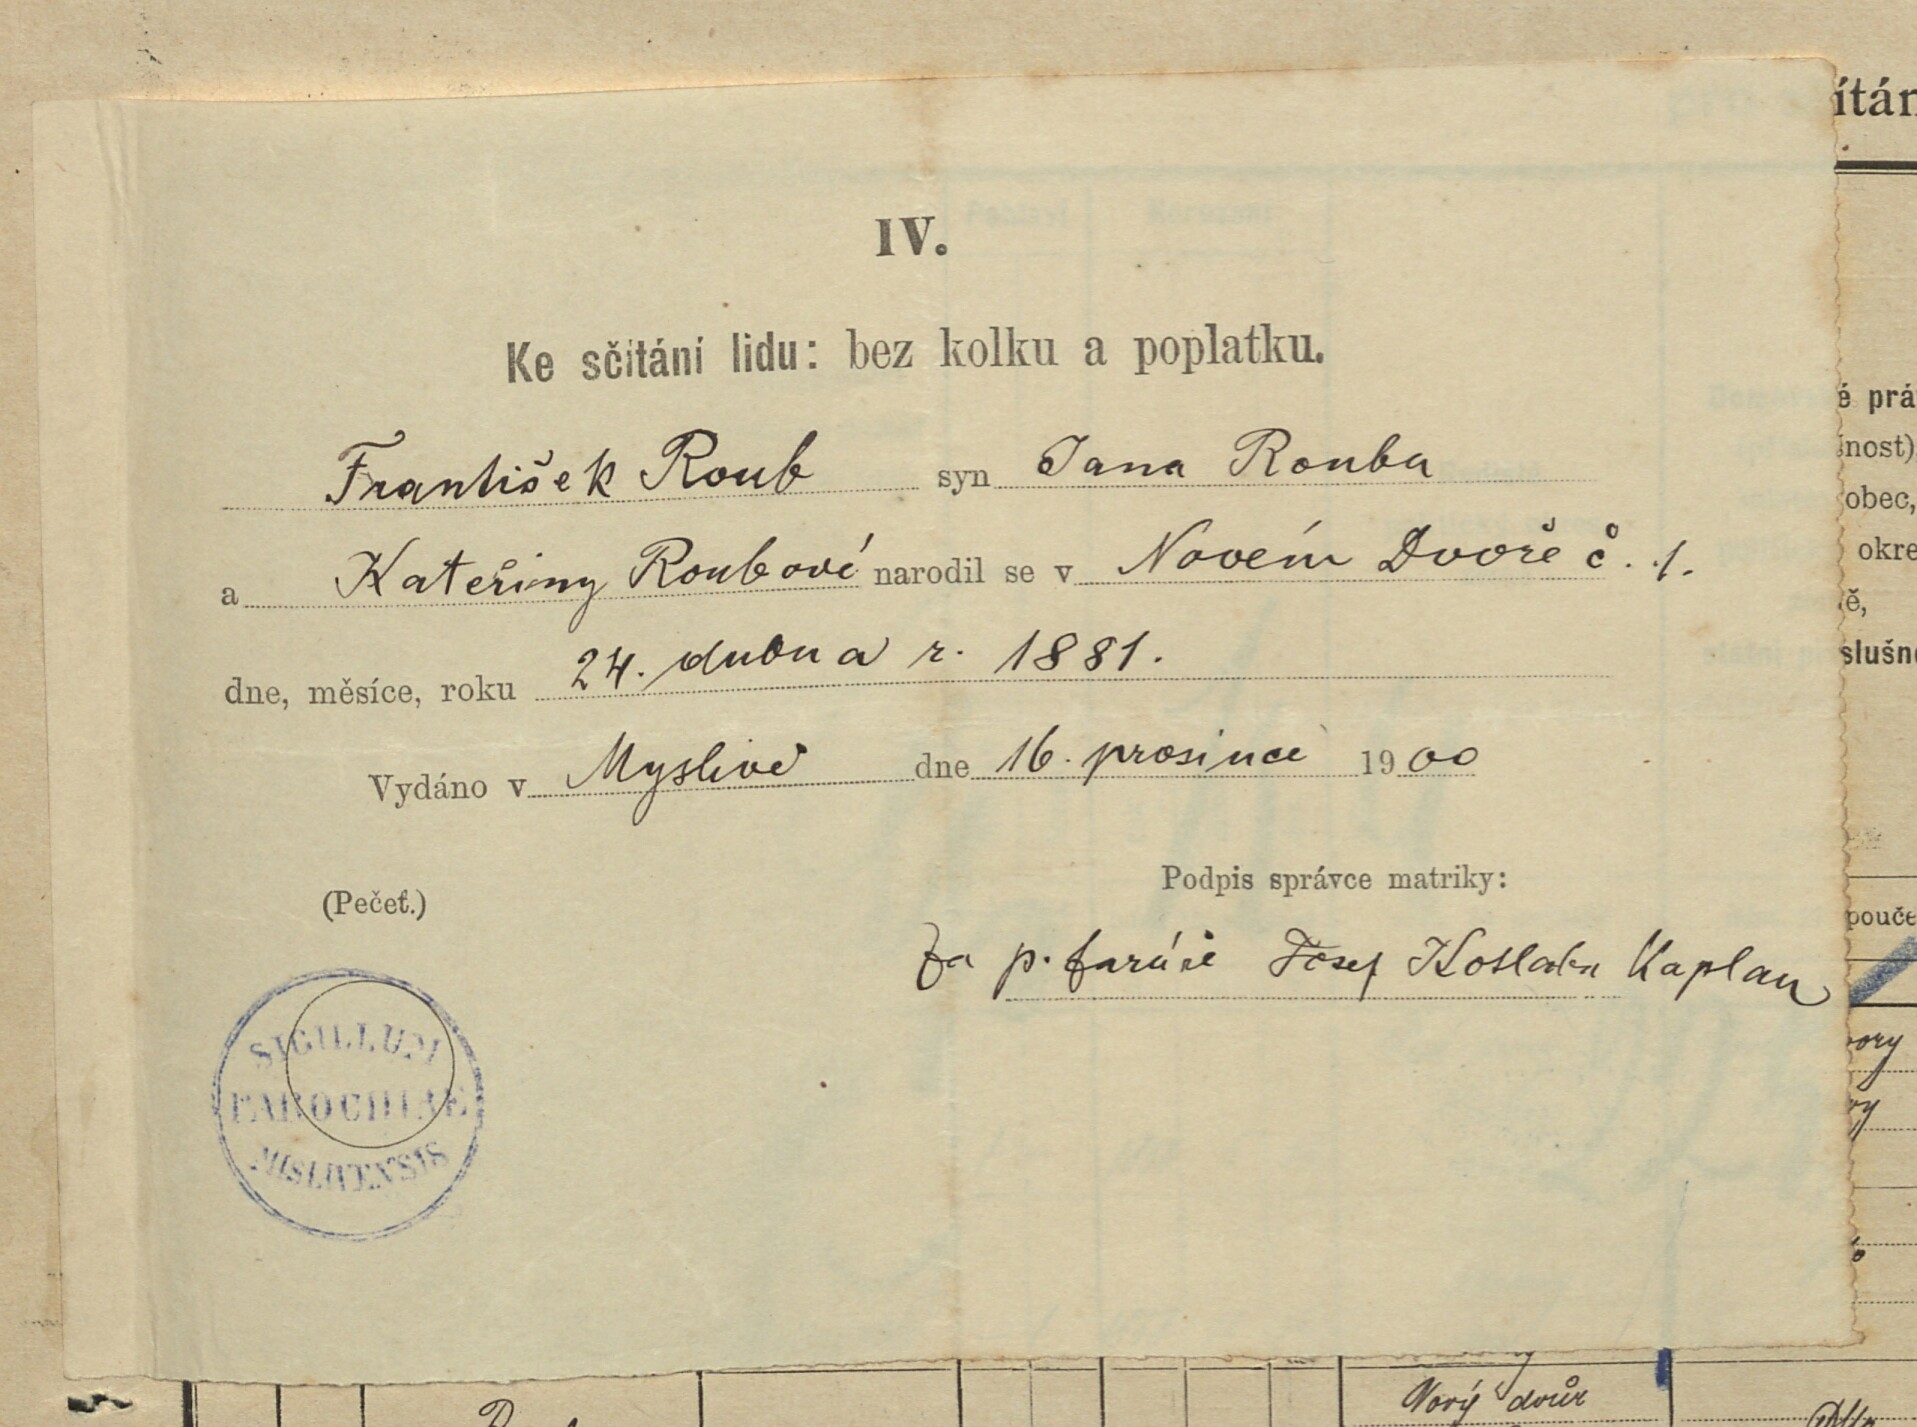 IV.
Ke sčítání lidu: bez kolku a poplatku.
František Roub syn Jana Rouba
a Kateřiny Roubové narodil se v Novém Dvoře č. 1.
dne, měsíce, roku 24. dubna r. 1881.
Vydáno v Myslivě dne 16. prosince 1900
(Pečeť.)
Podpis správce matriky:
Za p. faráře Josef Kaplan
SIGILLUM
PAROCHIAE
MISLIVENSIS
ítán
é prá
nost)
obec,
okre
ě,
slušno
pouče
Nový dvůr